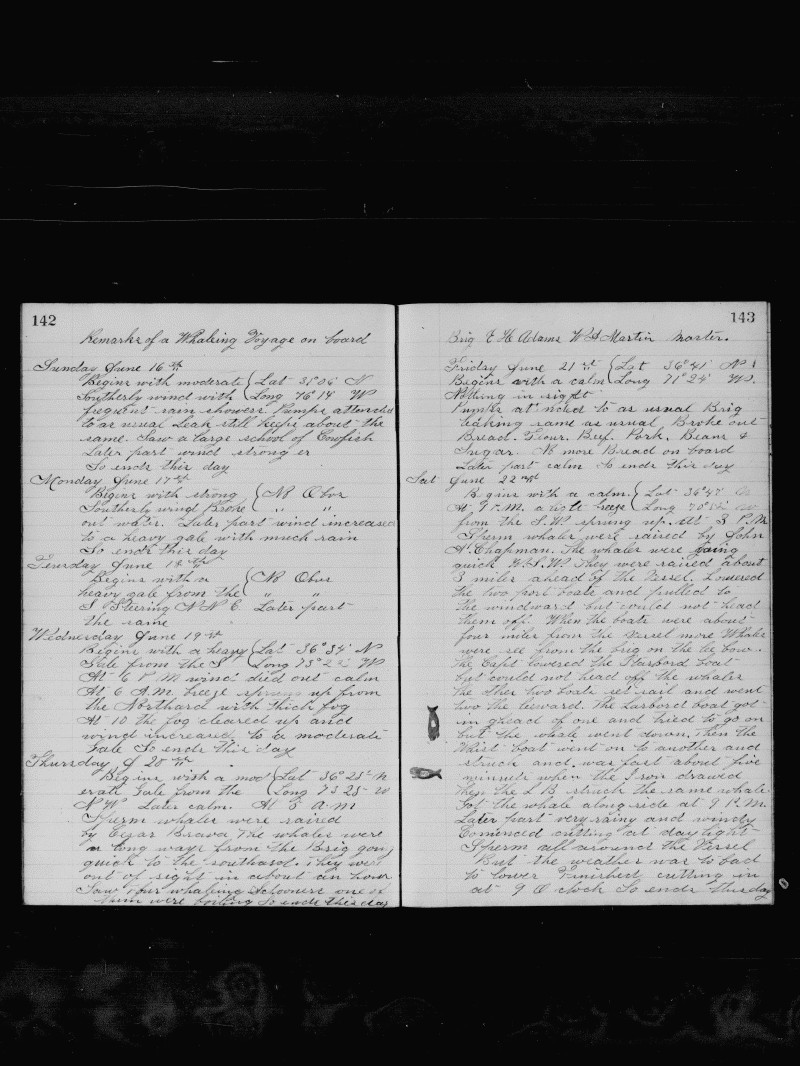 142
Remarks of a Whaleing Voyage on board
Sunday June 16th
Begins with moderate Lat 31°06' N
Southerly wind with Long 76°14' W
frequent rain showers Pumps attended
to as usual Leak still keeps about the
same. Saw a large school of Cowfish
Later part wind stronger
So ends this day
Monday June 17th
Begins with strong No Obsr
Southerly wind Broke " "
out water. Later part wind increased
to a heavy gale with much rain
So ends this day
Tuesday June 18th
Begins with a No Obsr
heavy gale from the " "
S Steering NNE. Later part
the same
Wednesday June 19th
Begins with a heavy Lat 36°34' N
Gale from the S Long 73° W
At 6 P M wind died out calm
At 6 A.M. breeze springs up from
the Northard with thick fog
At 10 the fog cleared up and
wind increased to a moderate
Gale So ends this day
Thursday J 20th
Begins with a mod Lat 36°25' N
erate Gale from the Long 73 25 W
NW Later calm. At 5 A.M
Sperm whales were raised
by Cezar Brava, The whales were
a long ways from the Brig going
quick to the southard. They were
out of sight in about an hour
Saw four whaleing Schooners one of
them were boiling So ends this day
143
Brig E H Adams W A Martin Master.
Friday June 21st Lat 36°41' N
Begins with a calm Long 71°24' W.
Nothing in sight
Pumps attended to as usual Brig
leaking same as usual Broke out
Bread. Flour. Beef. Pork. Beans &
Sugar. No more Bread on board
Later part calm So ends this day
Sat June 22nd
Begins with a calm. Lat 36°47'
At 1 P.M. a light breeze Long
from the S.W. sprung up. At 3 P.M.
Sperm whales were raised by John
A. Chapman. The whales were going
quick They were raised about
3 miles ahead of the Vessel. Lowered
the two port boats and pulled to
the windward but could not head
them off. When the boats were about
four miles from the Vessel more Whales
were see from the brig on the lee bow.
The Capt lowered the Starbord boat
but could not head off the whales
the other two boats set sail and went
two the leeward. The Larbord boat got
in ahead of one and tried to go on
but the whale went down, Then the
Waist boat went on to another and
struck and was fast about five
minuets when the Iron drawed
Then the L B struck the same whale
Got the whale along side at 9 P.M.
Later part very rainy and windy
Comenced cutting at daylight
Sperm all around the Vessel
But the weather was to bad
to lower Finished cutting in
at 9 O clock So ends this day